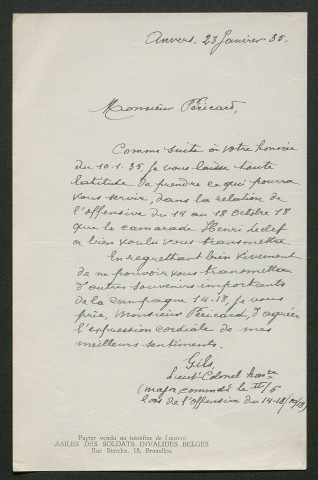 Anvers, 23 Janvier 35.
Monsieur Péricard,
Comme suite à votre honorée
du 10.1.35, je vous laisse toute
latitude de prendre ce qui pourra
vous servir, dans la relation de
l'offensive du 14 au 18 octobre 18
que le camarade Henri
a bien voulu vous transmettre.
En regrettant bien vivement
de ne pouvoir vous transmettre
d'autres souvenirs importants
de la campagne 14-18, je vous
prie, Monsieur Péricard, d'agréer
l'expression cordiale de mes
meilleurs sentiments.
Gils,
Lieut-Colonel honre
(major commdt le II/5
lors de l'offensive du 14-18/10/18)
Papier vendu au bénéfice de l'œuvre
ASILES DES SOLDATS INVALIDES BELGES
Rue Sterckx, 18, Bruxelles.